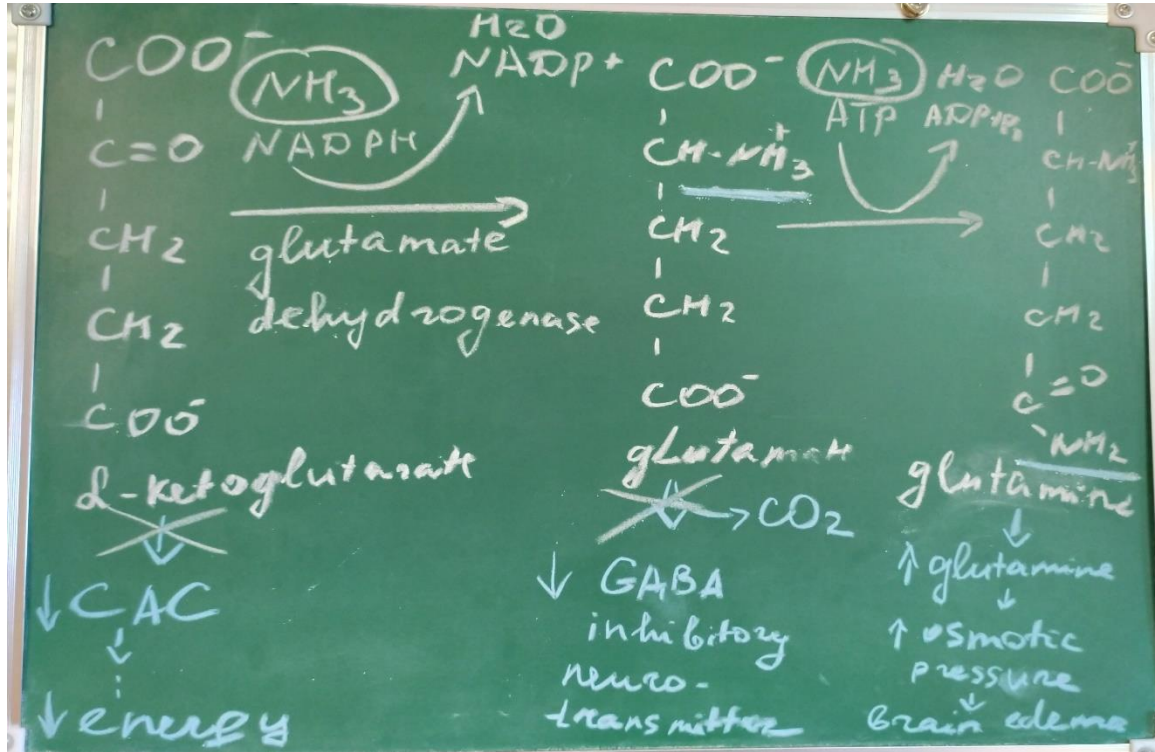 COO⁻
C=O
CH2
CH2
COO⁻
α-ketoglutarate
↓ CAC
↓ energy
NH3
NADPH
H2O
NADP+
glutamate
dehydrogenase
COO⁻
CH-NH3⁺
CH2
CH2
COO⁻
→ CO2
↓ GABA
inhibitory
neuro-
transmitter
NH3
ATP
H2O
COO⁻
CH-NH3⁺
CH2
CH2
C=O
NH2
glutamine
↑ glutamine
↑ osmotic
pressure
brain edema